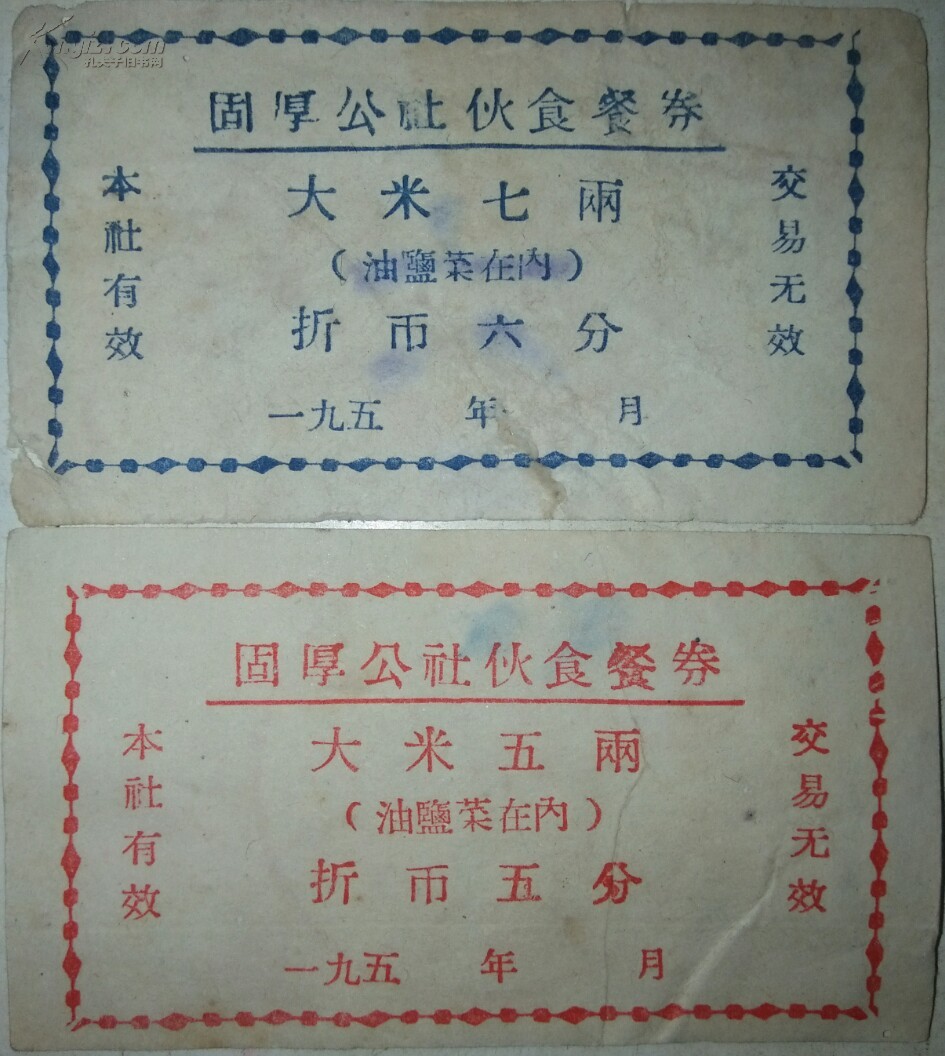 固厚公社伙食餐券
大米七兩
（油鹽菜在內）
折币六分
一九五 年 月
本社有效
交易无效
固厚公社伙食餐券
大米五兩
（油鹽菜在內）
折币五分
一九五 年 月
本社有效
交易无效
孔夫子旧书网